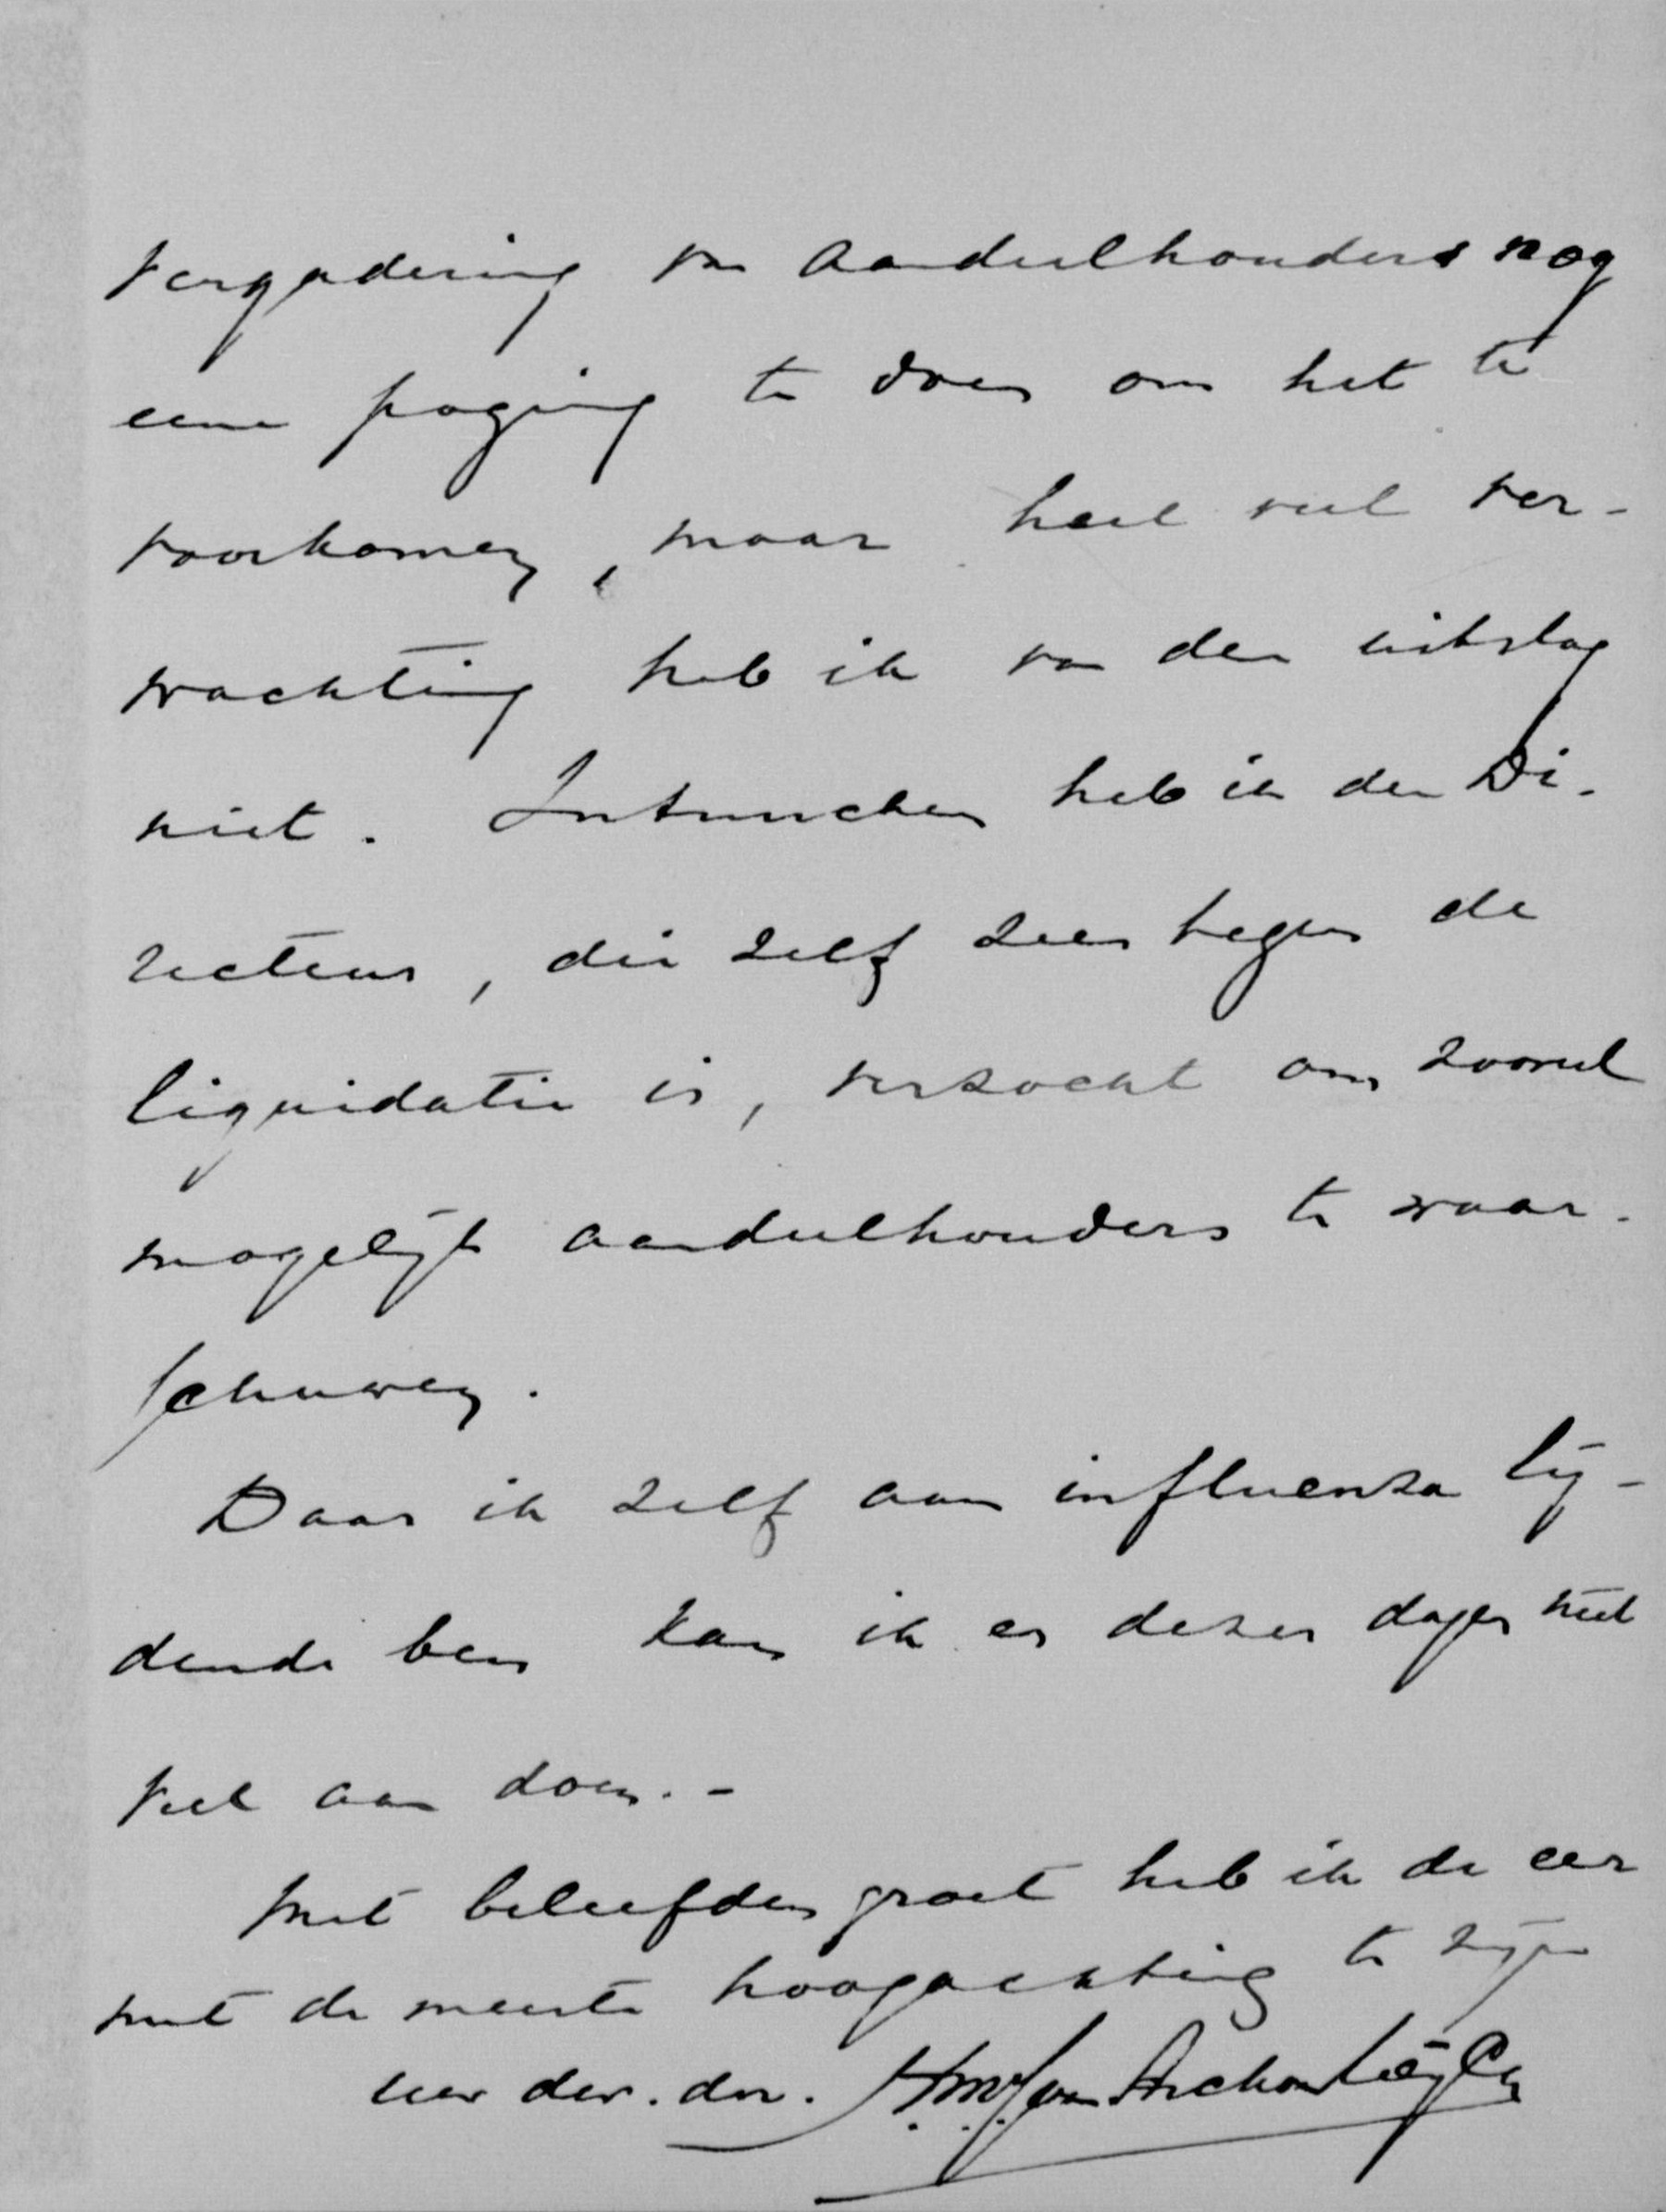 vergadering van aandeelhouders nog
eene poging te doen om het te
voorkomen, maar heel veel ver-
wachting heb ik van den uitslag
niet. Intusschen heb ik den Di-
recteur, die zelf zeer tegen de
liquidatie is, verzocht om zooveel
mogelijk aandeelhouders te waar-
schuwen.
Daar ik zelf aan influenza lij-
dende ben kan ik er dezer dagen niet
veel aan doen.-
Met beleefden groet heb ik de eer
met de meeste hoogachting te zijn
Uw dw. dr. van